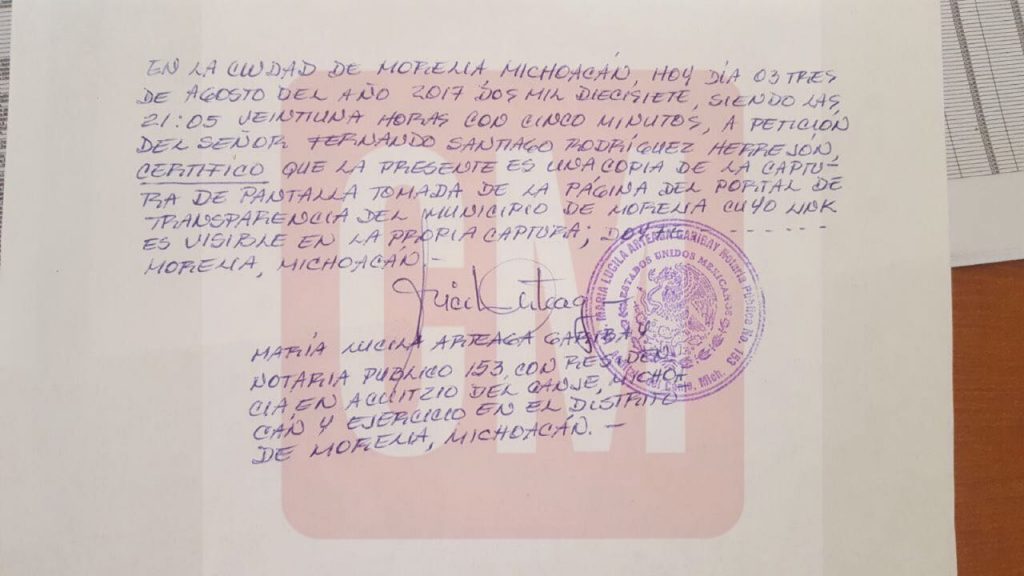 EN LA CIUDAD DE MORELIA MICHOACÁN, HOY DÍA 03 TRES
DE AGOSTO DEL AÑO 2017 DOS MIL DIECISIETE, SIENDO LAS
21:05 VEINTIUNA HORAS CON CINCO MINUTOS, A PETICIÓN
DEL SEÑOR FERNANDO SANTIAGO RODRÍGUEZ HERREJÓN,
CERTIFICO QUE LA PRESENTE ES UNA COPIA DE LA CAPTU-
RA DE PANTALLA TOMADA DE LA PÁGINA DEL PORTAL DE
TRANSPARENCIA DEL MUNICIPIO DE MORELIA CUYO LINK
ES VISIBLE EN LA PROPIA CAPTURA; DOY FE.- - - - - - -
MORELIA, MICHOACÁN.-
MARÍA LUCILA ARTEAGA GARIBAY
NOTARIA PÚBLICO 153, CON RESIDEN-
CIA EN ACUITZIO DEL CANJE, MICHOA-
CÁN Y EJERCICIO EN EL DISTRITO
DE MORELIA, MICHOACÁN.-
MARIA LUCILA ARTEAGA GARIBAY Notaria Público No. 153
ESTADOS UNIDOS MEXICANOS
Mich.
CM